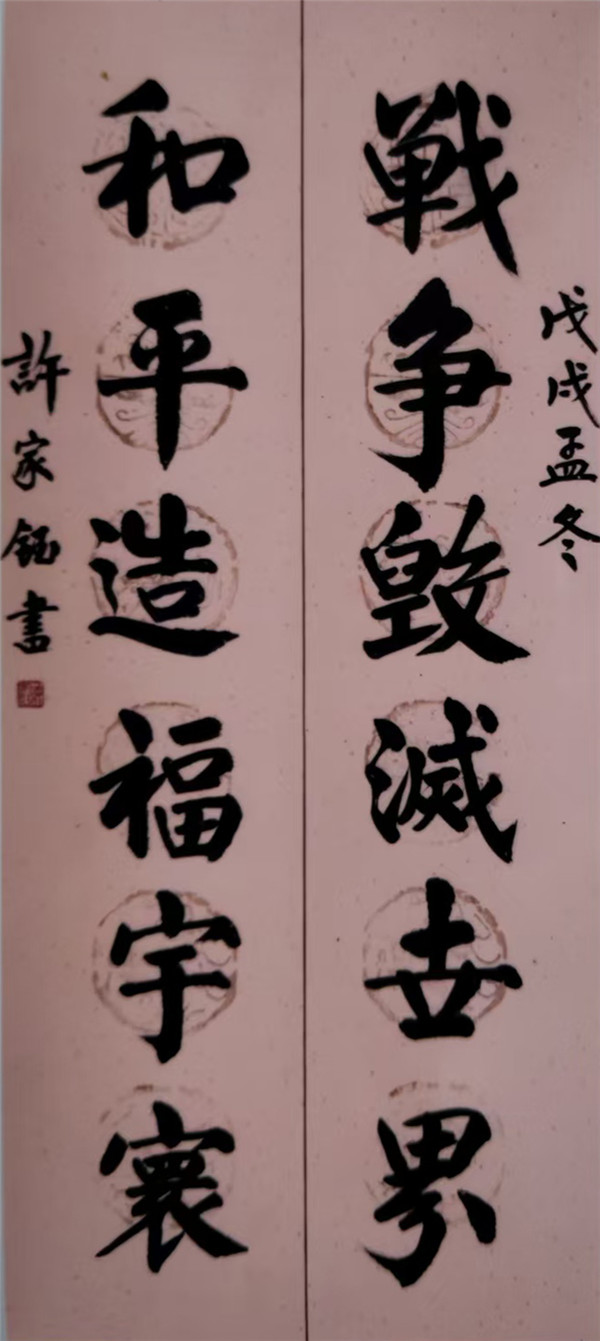 戊戌孟冬
戦争毀滅世界
和平造福宇寰
許家鈺書